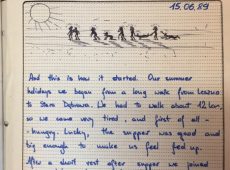 15.06.89
And this is how it started. Our summer
holidays we began from a long walk from Leszno
to Stara Dąbrowa. We had to walk about 12 km,
so we came very tired, and first of all -
- hungry. Lucky, the supper was good and
big enough to make us feel feed up.
After a short rest after supper we joined